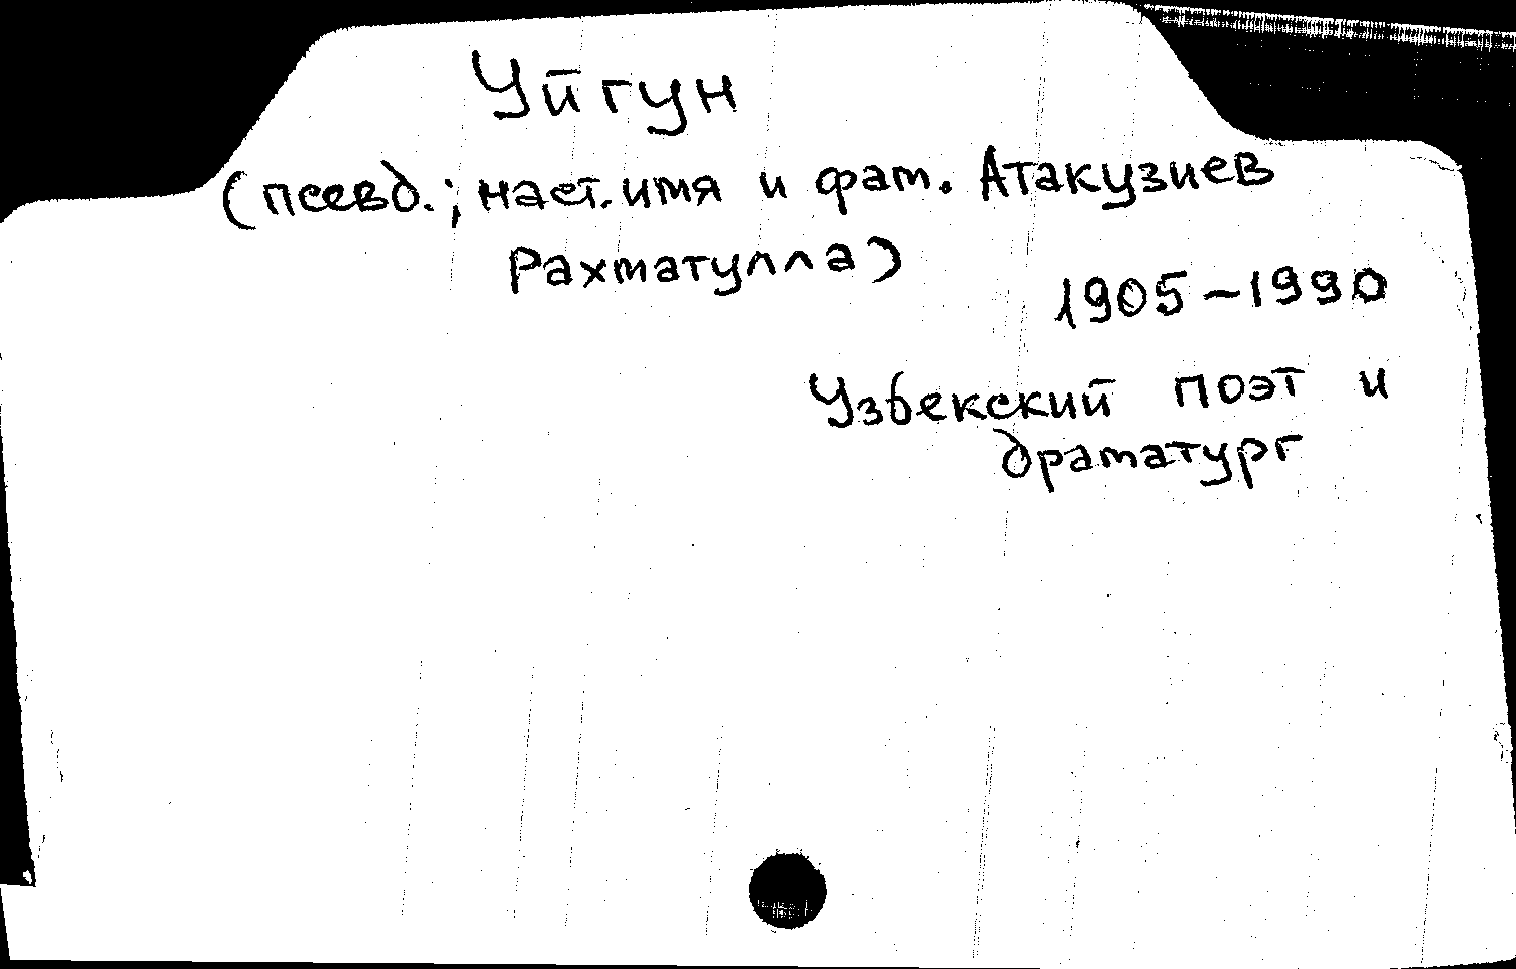 Уйгун
(псевд.; наст. имя и фам. Атакузиев
Рахматулла)
1905-1990
Узбекский поэт и
драматург